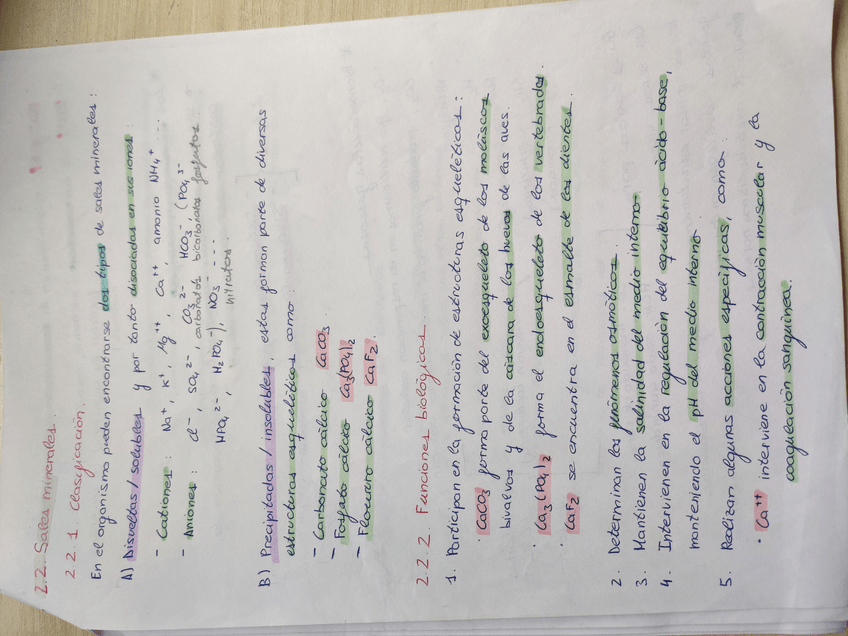 2.2. Sales minerales.
2.2.1. Clasificación.
En el organismo pueden encontrarse dos tipos de sales minerales:
A) Disueltas / solubles y por tanto disociadas en sus iones:
- Cationes: Na⁺, K⁺, Mg⁺⁺, Ca⁺⁺, amonio NH₄⁺ ...
- Aniones: Cl⁻, SO₄²⁻, CO₃²⁻, HCO₃⁻, (PO₄³⁻
carbonatos bicarbonatos fosfatos
HPO₄²⁻, H₂PO₄⁻), NO₃⁻ ....
nitratos.
B) Precipitadas / insolubles, estas forman parte de diversas
estructuras esqueléticas como:
- Carbonato cálcico CaCO₃
- Fosfato cálcico Ca₃(PO₄)₂
- Fluoruro cálcico CaF₂.
2.2.2. Funciones biológicas.
1. Participan en la formación de estructuras esqueléticas:
· CaCO₃ forma parte del exoesqueleto de los moluscos
bivalvos y de la cáscara de los huevos de las aves.
· Ca₃(PO₄)₂ forma el endoesqueleto de los vertebrados.
· CaF₂ se encuentra en el esmalte de los dientes.
2. Determinan los fenómenos osmóticos.
3. Mantienen la salinidad del medio interno.
4. Intervienen en la regulación del equilibrio ácido-base,
manteniendo el pH del medio interno.
5. Realizan algunas acciones específicas, como:
· Ca⁺⁺ interviene en la contracción muscular y la
coagulación sanguínea.